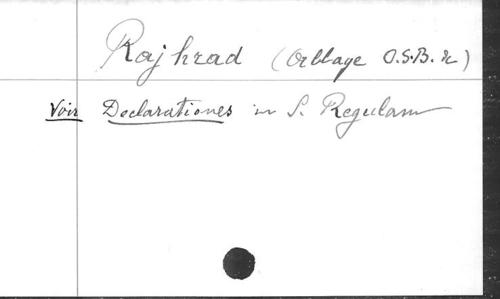 Rajhrad (Abbaye O.S.B. de)
Voir Declarationes in S. Regulam